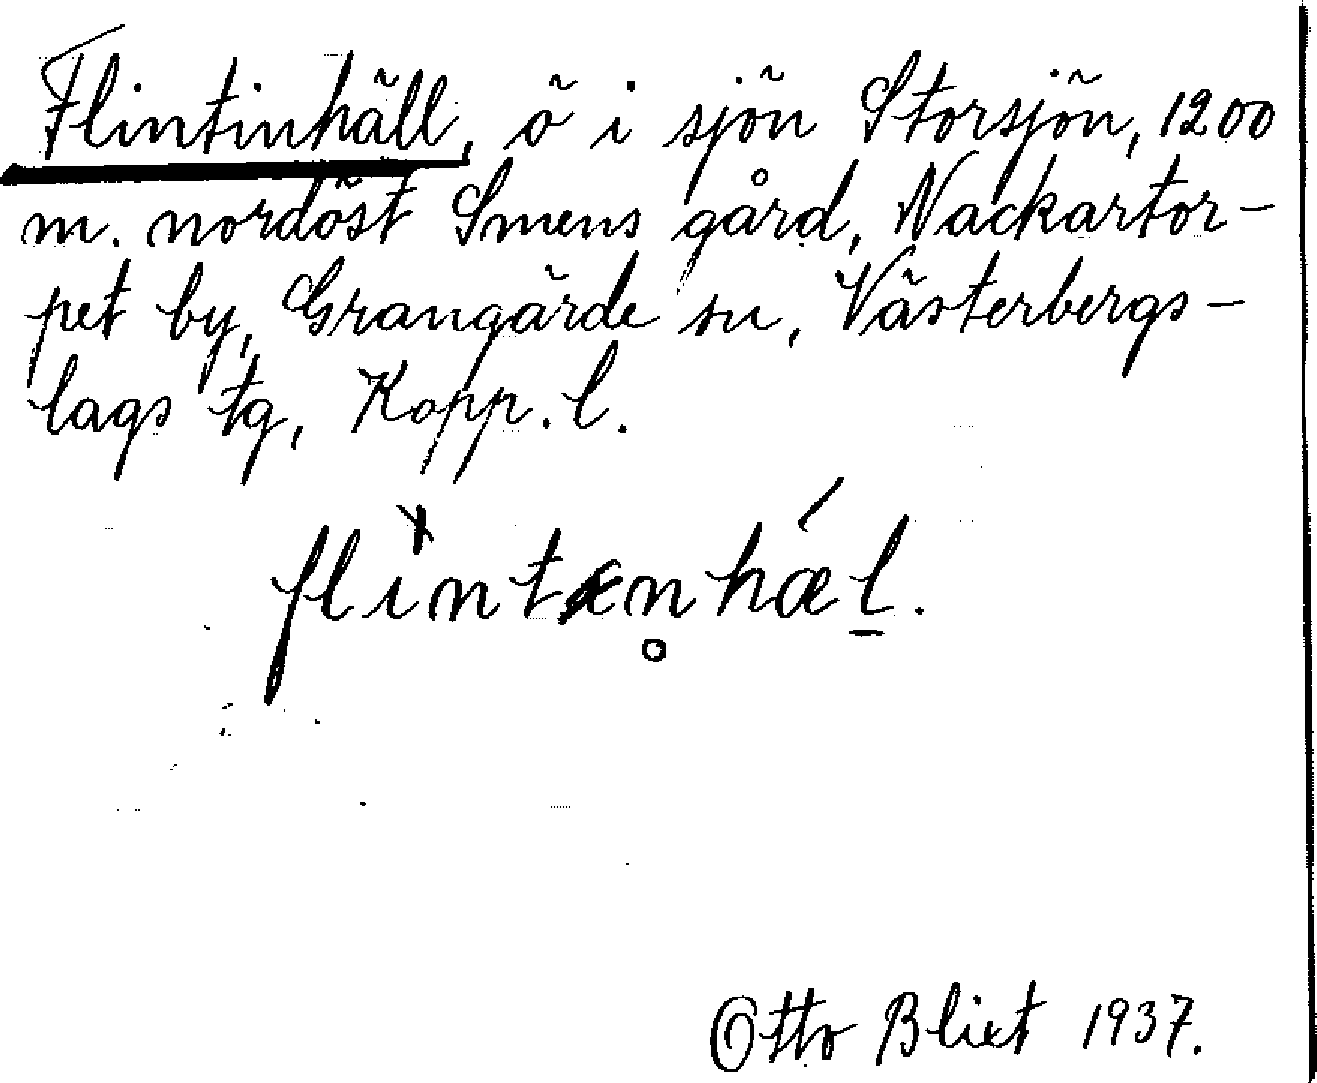 Flintinhäll, ö i sjön Storsjön, 1200
m. nordöst Smens gård, Nackartor-
pet by, Grangärde sn, Västerbergs-
lags tg, Kopp. l.
flìntænhǽl.
Otto Blixt 1937.